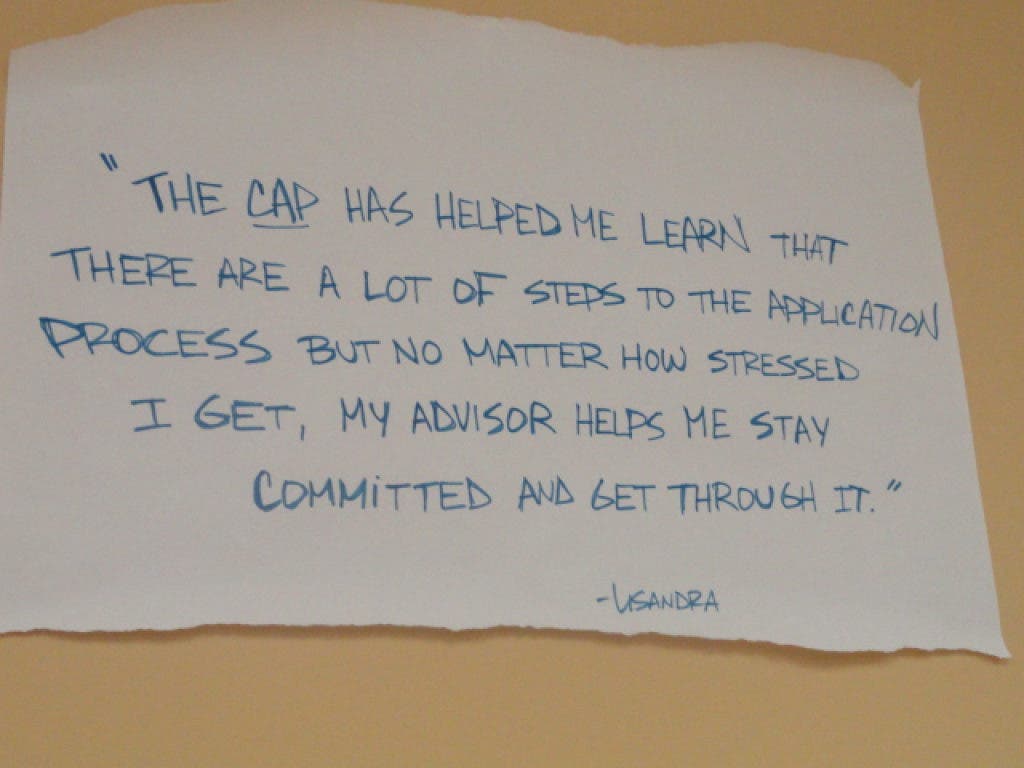 "THE CAP HAS HELPED ME LEARN THAT
THERE ARE A LOT OF STEPS TO THE APPLICATION
PROCESS BUT NO MATTER HOW STRESSED
I GET, MY ADVISOR HELPS ME STAY
COMMiTTED AND GET THROUGH IT."
-LISANDRA